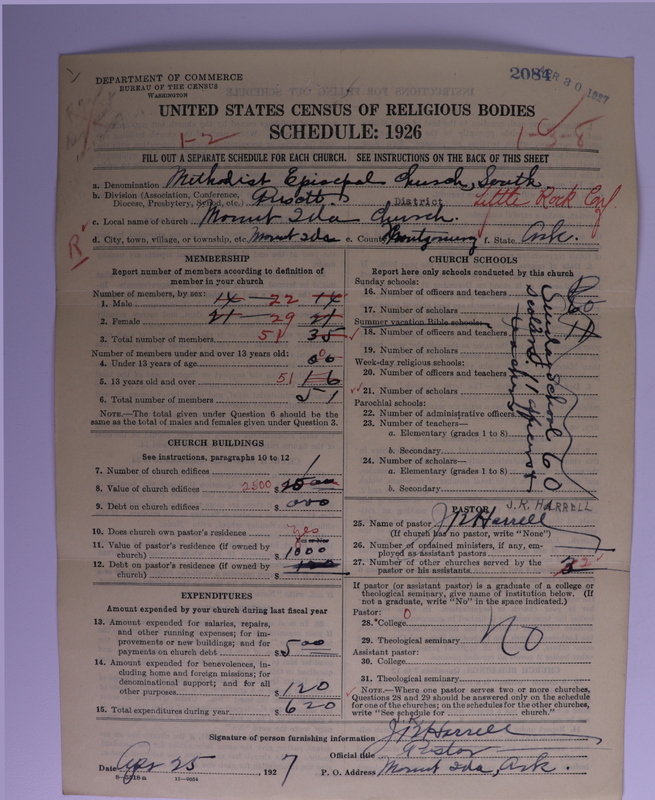 2084 APR 30 1927
DEPARTMENT OF COMMERCE
BUREAU OF THE CENSUS
WASHINGTON
UNITED STATES CENSUS OF RELIGIOUS BODIES
SCHEDULE: 1926
1-2
FILL OUT A SEPARATE SCHEDULE FOR EACH CHURCH. SEE INSTRUCTIONS ON THE BACK OF THIS SHEET
a. Denomination Methodist Episcopal Church, South
b. Division (Association, Conference, Diocese, Presbytery, Synod, etc.) District Little Rock Conf.
c. Local name of church Mount Ida Church.
d. City, town, village, or township, etc. Mount Ida e. County Montgomery f. State Ark.
R
MEMBERSHIP
Report number of members according to definition of
member in your church
Number of members, by sex:
1. Male 14 22 14
2. Female 21 29 21
3. Total number of members 51 35
Number of members under and over 13 years old:
4. Under 13 years of age 0
5. 13 years old and over 51 16
6. Total number of members 51
NOTE.—The total given under Question 6 should be the
same as the total of males and females given under Question 3.
CHURCH BUILDINGS
See instructions, paragraphs 10 to 12
7. Number of church edifices 1
8. Value of church edifices 2500 $
9. Debt on church edifices $ 000
10. Does church own pastor's residence Yes
11. Value of pastor's residence (if owned by
church) $ 1000
12. Debt on pastor's residence (if owned by
church) $
EXPENDITURES
Amount expended by your church during last fiscal year
13. Amount expended for salaries, repairs,
and other running expenses; for im-
provements or new buildings; and for
payments on church debt $ 500
14. Amount expended for benevolences, in-
cluding home and foreign missions; for
denominational support; and for all
other purposes $ 120
15. Total expenditures during year $ 620
CHURCH SCHOOLS
Report here only schools conducted by this church
Sunday schools:
16. Number of officers and teachers
17. Number of scholars
Summer vacation Bible schools:
18. Number of officers and teachers
19. Number of scholars
Week-day religious schools:
20. Number of officers and teachers
21. Number of scholars
Parochial schools:
22. Number of administrative officers
23. Number of teachers—
a. Elementary (grades 1 to 8)
b. Secondary
24. Number of scholars—
a. Elementary (grades 1 to 8)
b. Secondary
Sunday School 60
Scholars 11 officers &
teachers
J. R. HARRELL
PASTOR
25. Name of pastor J R Harrell
(If church has no pastor, write "None")
26. Number of ordained ministers, if any, em-
ployed as assistant pastors
27. Number of other churches served by the
pastor or his assistants 3
If pastor (or assistant pastor) is a graduate of a college or
theological seminary, give name of institution below. (If
not a graduate, write "No" in the space indicated.)
Pastor:
28. College 0
29. Theological seminary No
Assistant pastor:
30. College
31. Theological seminary
NOTE.—Where one pastor serves two or more churches,
Questions 28 and 29 should be answered only on the schedule
for one of the churches; on the schedules for the other churches,
write "See schedule for church."
Signature of person furnishing information J R Harrell
Official title Pastor
Date Apr 25 1927 P. O. Address Mount Ida, Ark.
11—9054